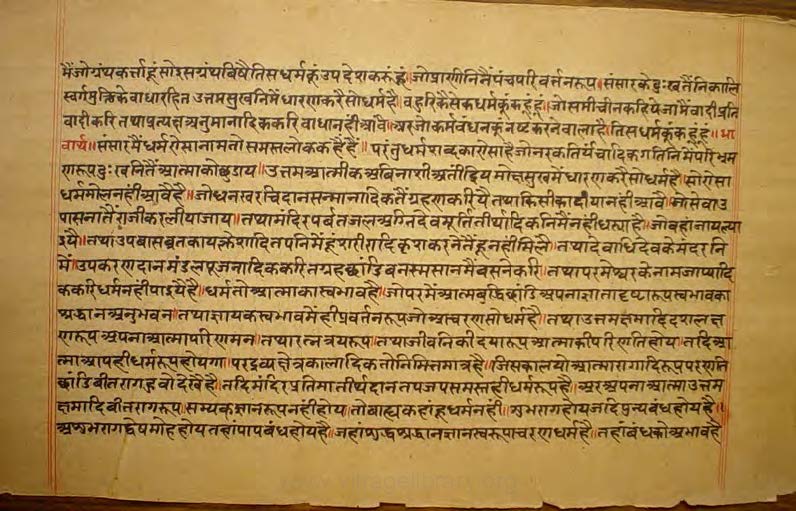 मैंजोग्रंथकर्त्ताहूंसोइसग्रंथविषैतिसधर्मकूंउपदेशकरूंहूं॥जोप्राणीनिनैंपंचपरिवर्त्तनरूप॥संसारकेदुःखतैंनिकालि
स्वर्गमुक्तिकेबाधारहितउत्तमसुखनिमेंधारणकरैसोधर्महै॥बहुरिकैसेकधर्मकूंकहूंहूं॥जोसमीचीनकहियेजामैंवादीप्रति
वादीकरितथाप्रत्यक्षअनुमानादिककरिबाधानहीआवै॥अरजोकर्मबंधनकूंनष्टकरनेवालाहै॥तिसधर्मकूंकहूंहूं॥भा
वार्थ॥संसारमैंधर्मऐसानामतोसमस्तलोककहैहैं॥परंतुधर्मशब्दकाऐसाहैजोनरकतिर्यंचादिकगतिनिमेंपरिभ्रम
णरूपदुःखनितैंआत्माकोछुडाय॥उत्तमआत्मीकअविनाशीअतींद्रियमोक्षसुखमेंधारणकरैसोधर्महै॥सोऐसा
धर्ममोलनहींआवैहै॥जोधनखरचिदानसन्मानादिकतैंग्रहणकरियैतथाकिसीकादीयानहीआवै॥जोसेवाउ
पासनातैंराजीकरलीयाजाय॥तथामंदिरपर्बतजलअग्निदेवमूर्तितीर्थादिकनिमैंनहीधर्‍याहै॥जोवहांजायल्या
इयै॥तथाउपबासब्रतकायक्लेशादितपनिमेंहूंशरीरादिकृशकरनेतैंहूनहीमिलै॥तथादेवाधिदेवकेमंदरनि
मैं॥उपकरणदानमंडलपूजनादिककरितग्रहछांडिबनस्मसानमैंबसनेकरि॥तथापरमेश्वरकेनामजाप्यादि
ककरिधर्मनहीपाइयैहै॥धर्मतोआत्माकास्वभावहै॥जोपरमेंआत्मबुद्धिछांडिअपनाज्ञातादृष्टारूपस्वभावका
श्रद्धानअनुभवन॥तथाज्ञायकस्वभावमेंहीप्रवर्तनरूपजोआचरणसोधर्महै॥तथाउत्तमक्षमादिदशलक्ष
णरूपअपनाआत्मापरिणमन॥तथारत्नत्रयरूप॥तथाजीवनिकीदयारूपआत्माकीपरिणतिहोय॥तदिआ
त्माआपहीधर्मरूपहोयगा॥परद्रव्यक्षेत्रकालादिकतोनिमित्तमात्रहै॥जिसकालयोआत्मारागादिरूपपरणति
छांडिबीतरागहूवोदेखेहै॥तदिमंदिरप्रतिमातीर्थदानतपजपसमस्तहीधर्मरूपहै॥अरअपनाआत्माउत्तम
क्षमादिबीतरागरूप॥सम्यकज्ञानरूपनहीहोय॥तोबाह्यकहांहूधर्मनही॥शुभरागहोयजदिपुन्यबंधहोयहै॥
अशुभरागद्वेषमोहहोयतहांपापबंधहोयहै॥जहांशुद्धश्रद्धानज्ञानस्वरूपाचरणधर्महै॥तहांबंधकोअभावहै